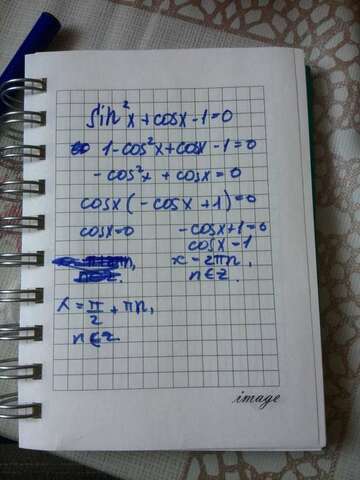 sin²x + cosx - 1 = 0
1 - cos²x + cosx - 1 = 0
- cos²x + cosx = 0
cosx ( - cosx + 1) = 0
cosx = 0
- cosx + 1 = 0
cosx = 1
x = 2πn,
n ∈ z.
x = π/2 + πn,
n ∈ z
image